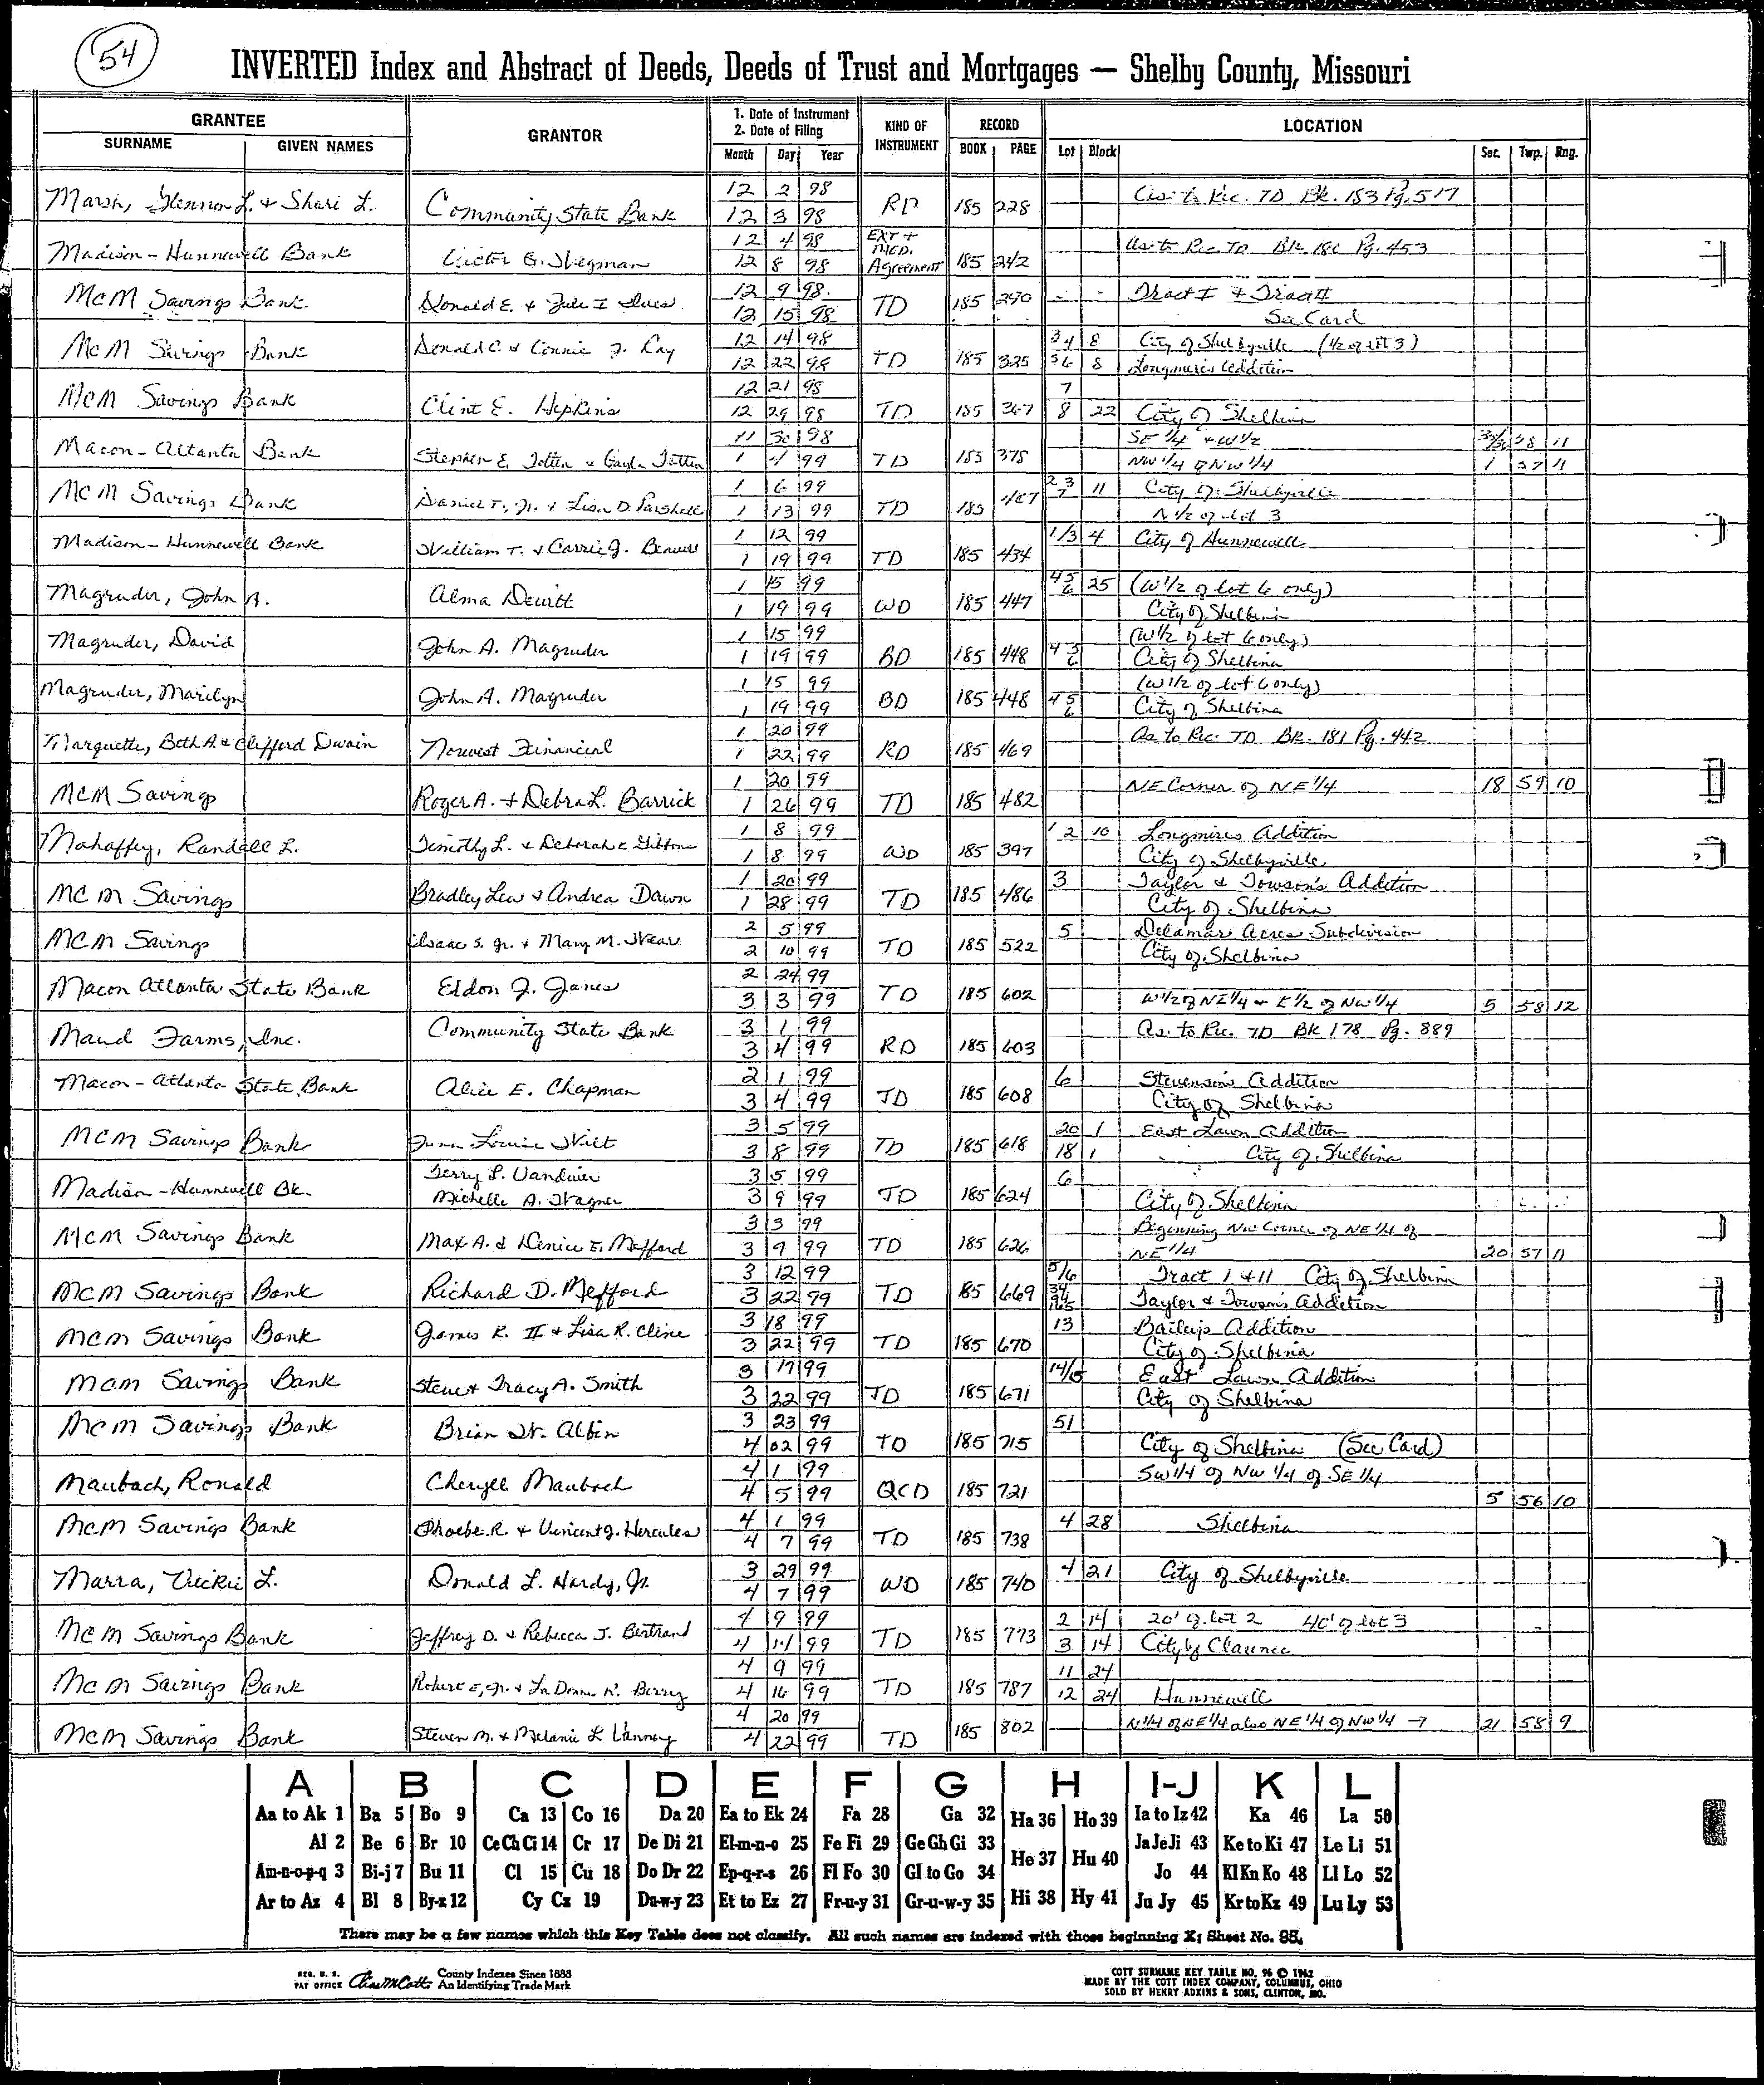 54
INVERTED Index and Abstract of Deeds, Deeds of Trust and Mortgages — Shelby County, Missouri
GRANTEE GRANTOR 1. Date of Instrument 2. Date of Filing KIND OF INSTRUMENT RECORD LOCATION
SURNAME GIVEN NAMES Month Day Year BOOK PAGE Lot Block Sec. Twp. Rng.
Marsh, Glennon L. & Shari L. Community State Bank 12 2 98 12 3 98 RD 185 228 As to Rec. TD Bk. 183 Pg. 517
Madison-Hunnewell Bank 12 4 98 12 8 98 EXT + MOD. Agreement 185 242 As to Rec TD Bk 180 Pg. 453
McM Savings Bank Donald E. & 12 9 98 12 15 98 TD 185 290 Tract I & Tract II See Card
McM Savings Bank Donald C. & Connie J. Ray 12 14 98 12 22 98 TD 185 325 3 4 8 5 6 8 City of Shelbyville (1/2 of lot 3) Longmires Addition
McM Savings Bank Clint E. Hopkins 12 21 98 12 29 98 TD 185 367 7 8 22 City of Shelbina
Macon-Atlanta Bank Stephen E. Totten & Gayla Totten 11 30 98 1 4 99 TD 185 375 SE 1/4 & W 1/2 NW 1/4 of NW 1/4 58 11 1 57 11
McM Savings Bank Daniel T., Jr. & Lisa D. Parshall 1 6 99 1 13 99 TD 185 407 2 3 7 11 City of Shelbyville N 1/2 of lot 3
Madison-Hunnewell Bank William T. & Carrie J. 1 12 99 1 19 99 TD 185 434 1/3 4 City of Hunnewell
Magruder, John A. Alma Dewitt 1 15 99 1 19 99 WD 185 447 4 5 6 25 (W 1/2 of lot 6 only) City of Shelbina
Magruder, David John A. Magruder 1 15 99 1 19 99 BD 185 448 4 5 6 (W 1/2 of lot 6 only) City of Shelbina
Magruder, Marilyn John A. Magruder 1 15 99 1 19 99 BD 185 448 4 5 6 (W 1/2 of lot 6 only) City of Shelbina
Marquette, Beth A. & Clifford Dwain Norwest Financial 1 20 99 1 22 99 RD 185 469 As to Rec. TD Bk. 181 Pg. 442
McM Savings Roger A. & Debra L. Barrick 1 20 99 1 26 99 TD 185 482 NE Corner of NE 1/4 18 59 10
Mahaffey, Randall L. Timothy L. & Deborah E. Gibbons 1 8 99 1 8 99 WD 185 397 1 2 10 Longmires Addition City of Shelbyville
McM Savings Bradley Lew & Andrea Dawn 1 20 99 1 28 99 TD 185 486 3 Taylor & Towson's Addition City of Shelbina
McM Savings Isaac S. Jr. & Mary M. Wear 2 5 99 2 10 99 TD 185 522 5 Delamar Acres Subdivision City of Shelbina
Macon Atlanta State Bank Eldon J. Janes 2 24 99 3 3 99 TD 185 602 W 1/2 of NE 1/4 & E 1/2 of NW 1/4 5 58 12
Maud Farms, Inc. Community State Bank 3 1 99 3 4 99 RD 185 603 As to Rec. TD Bk 178 Pg. 889
Macon-Atlanta State Bank Alice E. Chapman 2 1 99 3 4 99 TD 185 608 6 Stevenson's Addition City of Shelbina
McM Savings Bank Louise Wilt 3 5 99 3 8 99 TD 185 618 20 1 18 1 East Lawn Addition City of Shelbina
Madison-Hunnewell Bk. Terry L. Vandiver Michelle A. Wagner 3 5 99 3 9 99 TD 185 624 6 City of Shelbina
McM Savings Bank Max A. & Denice E. Mefford 3 3 99 3 9 99 TD 185 626 Beginning NW Corner of NE 1/4 of NE 1/4 20 57 11
McM Savings Bank Richard D. Mefford 3 12 99 3 22 99 TD 85 669 5/6 Tract 1 & 11 City of Shelbina Taylor & Towson's Addition
McM Savings Bank James R. II & Lisa R. Cline 3 18 99 3 22 99 TD 185 670 13 Bailey's Addition City of Shelbina
McM Savings Bank Steve & Tracy A. Smith 3 17 99 3 22 99 TD 185 671 14/15 East Lawn Addition City of Shelbina
McM Savings Bank Brian W. Albin 3 23 99 4 02 99 TD 185 715 51 City of Shelbina (See Card)
Maubach, Ronald Cheryle Maubach 4 1 99 4 5 99 QCD 185 721 SW 1/4 of NW 1/4 of SE 1/4 5 56 10
McM Savings Bank Phoebe R. & Vincent J. Hercules 4 1 99 4 7 99 TD 185 738 4 28 Shelbina
Marra, Vickie L. Donald L. Hardy, Jr. 3 29 99 4 7 99 WD 185 740 4 21 City of Shelbyville
McM Savings Bank Jeffrey D. & Rebecca J. Bertrand 4 9 99 4 14 99 TD 185 773 2 14 3 14 20' of lot 2 40' of lot 3 City of Clarence
McM Savings Bank Robert E., Jr. & La Donna K. Berry 4 9 99 4 16 99 TD 185 787 11 24 12 24 Hunnewell
McM Savings Bank Steven M. & Melanie L. Vanney 4 20 99 4 22 99 TD 185 802 N 1/4 of NE 1/4 also NE 1/4 of NW 1/4 → 21 58 9
A B C D E F G H I-J K L
Aa to Ak 1 Ba 5 Bo 9 Ca 13 Co 16 Da 20 Ea to Ek 24 Fa 28 Ga 32 Ha 36 Ho 39 Ia to Iz 42 Ka 46 La 50
Al 2 Be 6 Br 10 Ce Ch Ci 14 Cr 17 De Di 21 El-m-n-o 25 Fe Fi 29 Ge Gh Gi 33 He 37 Hu 40 Ja Je Ji 43 Ke to Ki 47 Le Li 51
Am-n-o-p-q 3 Bi-j 7 Bu 11 Cl 15 Cu 18 Do Dr 22 Ep-q-r-s 26 Fl Fo 30 Gl to Go 34 Jo 44 Kl Kn Ko 48 Ll Lo 52
Ar to Az 4 Bl 8 By-z 12 Cy Cz 19 Du-w-y 23 Et to Ez 27 Fr-u-y 31 Gr-u-w-y 35 Hi 38 Hy 41 Ju Jy 45 Kr to Kz 49 Lu Ly 53
There may be a few names which this Key Table does not classify. All such names are indexed with those beginning X; Sheet No. 95.
REG. U. S. PAT OFFICE Chas M Cott County Indexes Since 1888 An Identifying Trade Mark
COTT SURNAME KEY TABLE NO. 96 © 1962
MADE BY THE COTT INDEX COMPANY, COLUMBUS, OHIO
SOLD BY HENRY ADKINS & SONS, CLINTON, MO.